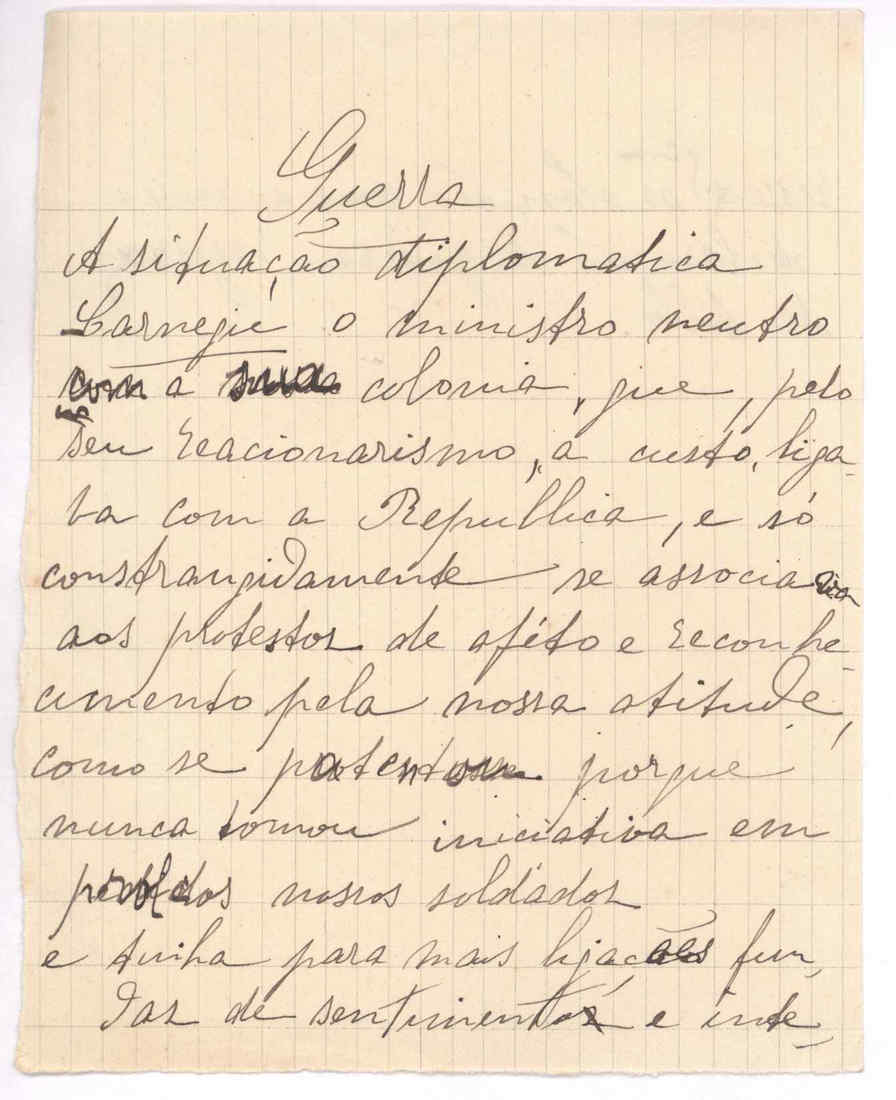 Guerra
A situação diplomatica
Carnegie o ministro neutro
com a sua colonia, que, pelo
seu reacionarismo, a custo, liga-
va com a Republica, e só
constrangidamente se associa
aos protestos de aféto e reconhe-
cimento pela nossa atitude,
como se patentou porque
nunca tomou iniciativa em
dos nossos soldados
e tinha para mais ligações fun-
das de sentimentos e inte-